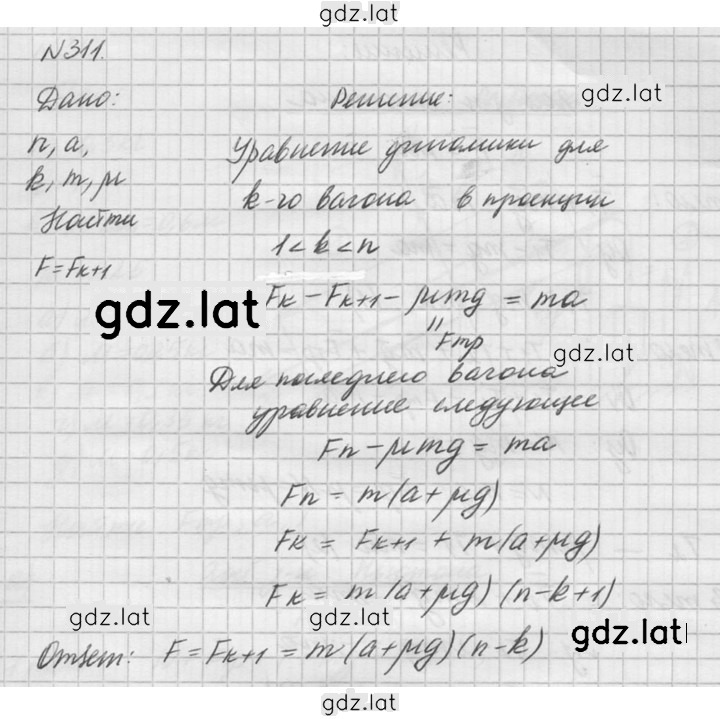 gdz.lat
N311.
Дано: Решение: gdz.lat
n, a, Уравнение динамики для
k, m, μ k-го вагона в проекции
Найти 1<k<n
F=Fk+1 Fk-Fk+1-μmg = ma
gdz.lat
"Fтр gdz.lat
Для последнего вагона
уравнение следующее
Fn-μmg = ma
Fn = m(a+μg)
Fk = Fk+1 + m(a+μg)
Fk = m(a+μg)(n-k+1)
gdz.lat gdz.lat gdz.lat
Ответ: F=Fk+1 = m(a+μg)(n-k)
gdz.lat